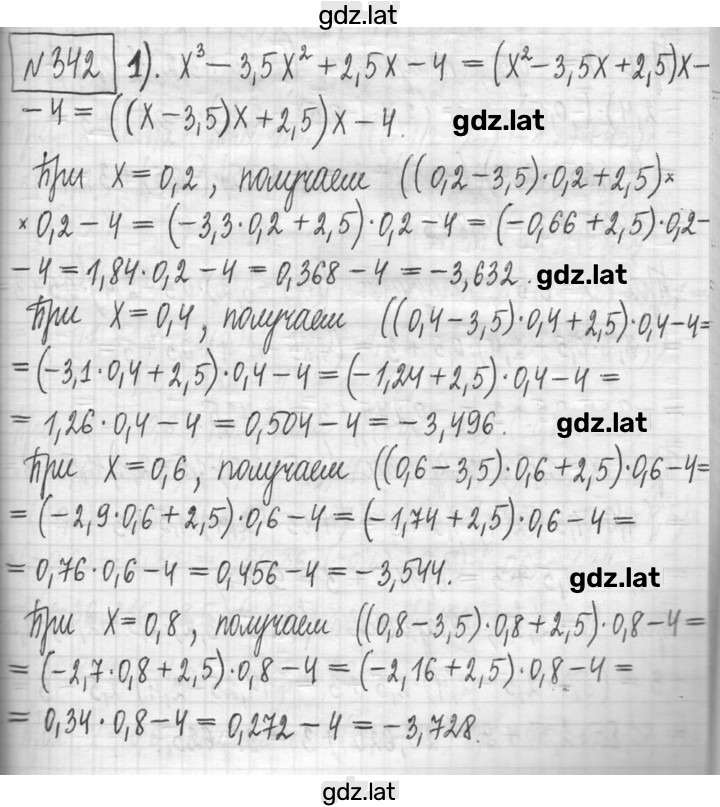 gdz.lat
№342 1). x³ - 3,5x² + 2,5x - 4 = (x² - 3,5x + 2,5)x -
- 4 = ((x - 3,5)x + 2,5)x - 4. gdz.lat
При x = 0,2, получаем ((0,2 - 3,5)·0,2 + 2,5)×
× 0,2 - 4 = (-3,3·0,2 + 2,5)·0,2 - 4 = (-0,66 + 2,5)·0,2 -
- 4 = 1,84·0,2 - 4 = 0,368 - 4 = -3,632. gdz.lat
При x = 0,4, получаем ((0,4 - 3,5)·0,4 + 2,5)·0,4 - 4 =
= (-3,1·0,4 + 2,5)·0,4 - 4 = (-1,24 + 2,5)·0,4 - 4 =
= 1,26·0,4 - 4 = 0,504 - 4 = -3,496. gdz.lat
При x = 0,6, получаем ((0,6 - 3,5)·0,6 + 2,5)·0,6 - 4 =
= (-2,9·0,6 + 2,5)·0,6 - 4 = (-1,74 + 2,5)·0,6 - 4 =
= 0,76·0,6 - 4 = 0,456 - 4 = -3,544. gdz.lat
При x = 0,8, получаем ((0,8 - 3,5)·0,8 + 2,5)·0,8 - 4 =
= (-2,7·0,8 + 2,5)·0,8 - 4 = (-2,16 + 2,5)·0,8 - 4 =
= 0,34·0,8 - 4 = 0,272 - 4 = -3,728.
gdz.lat